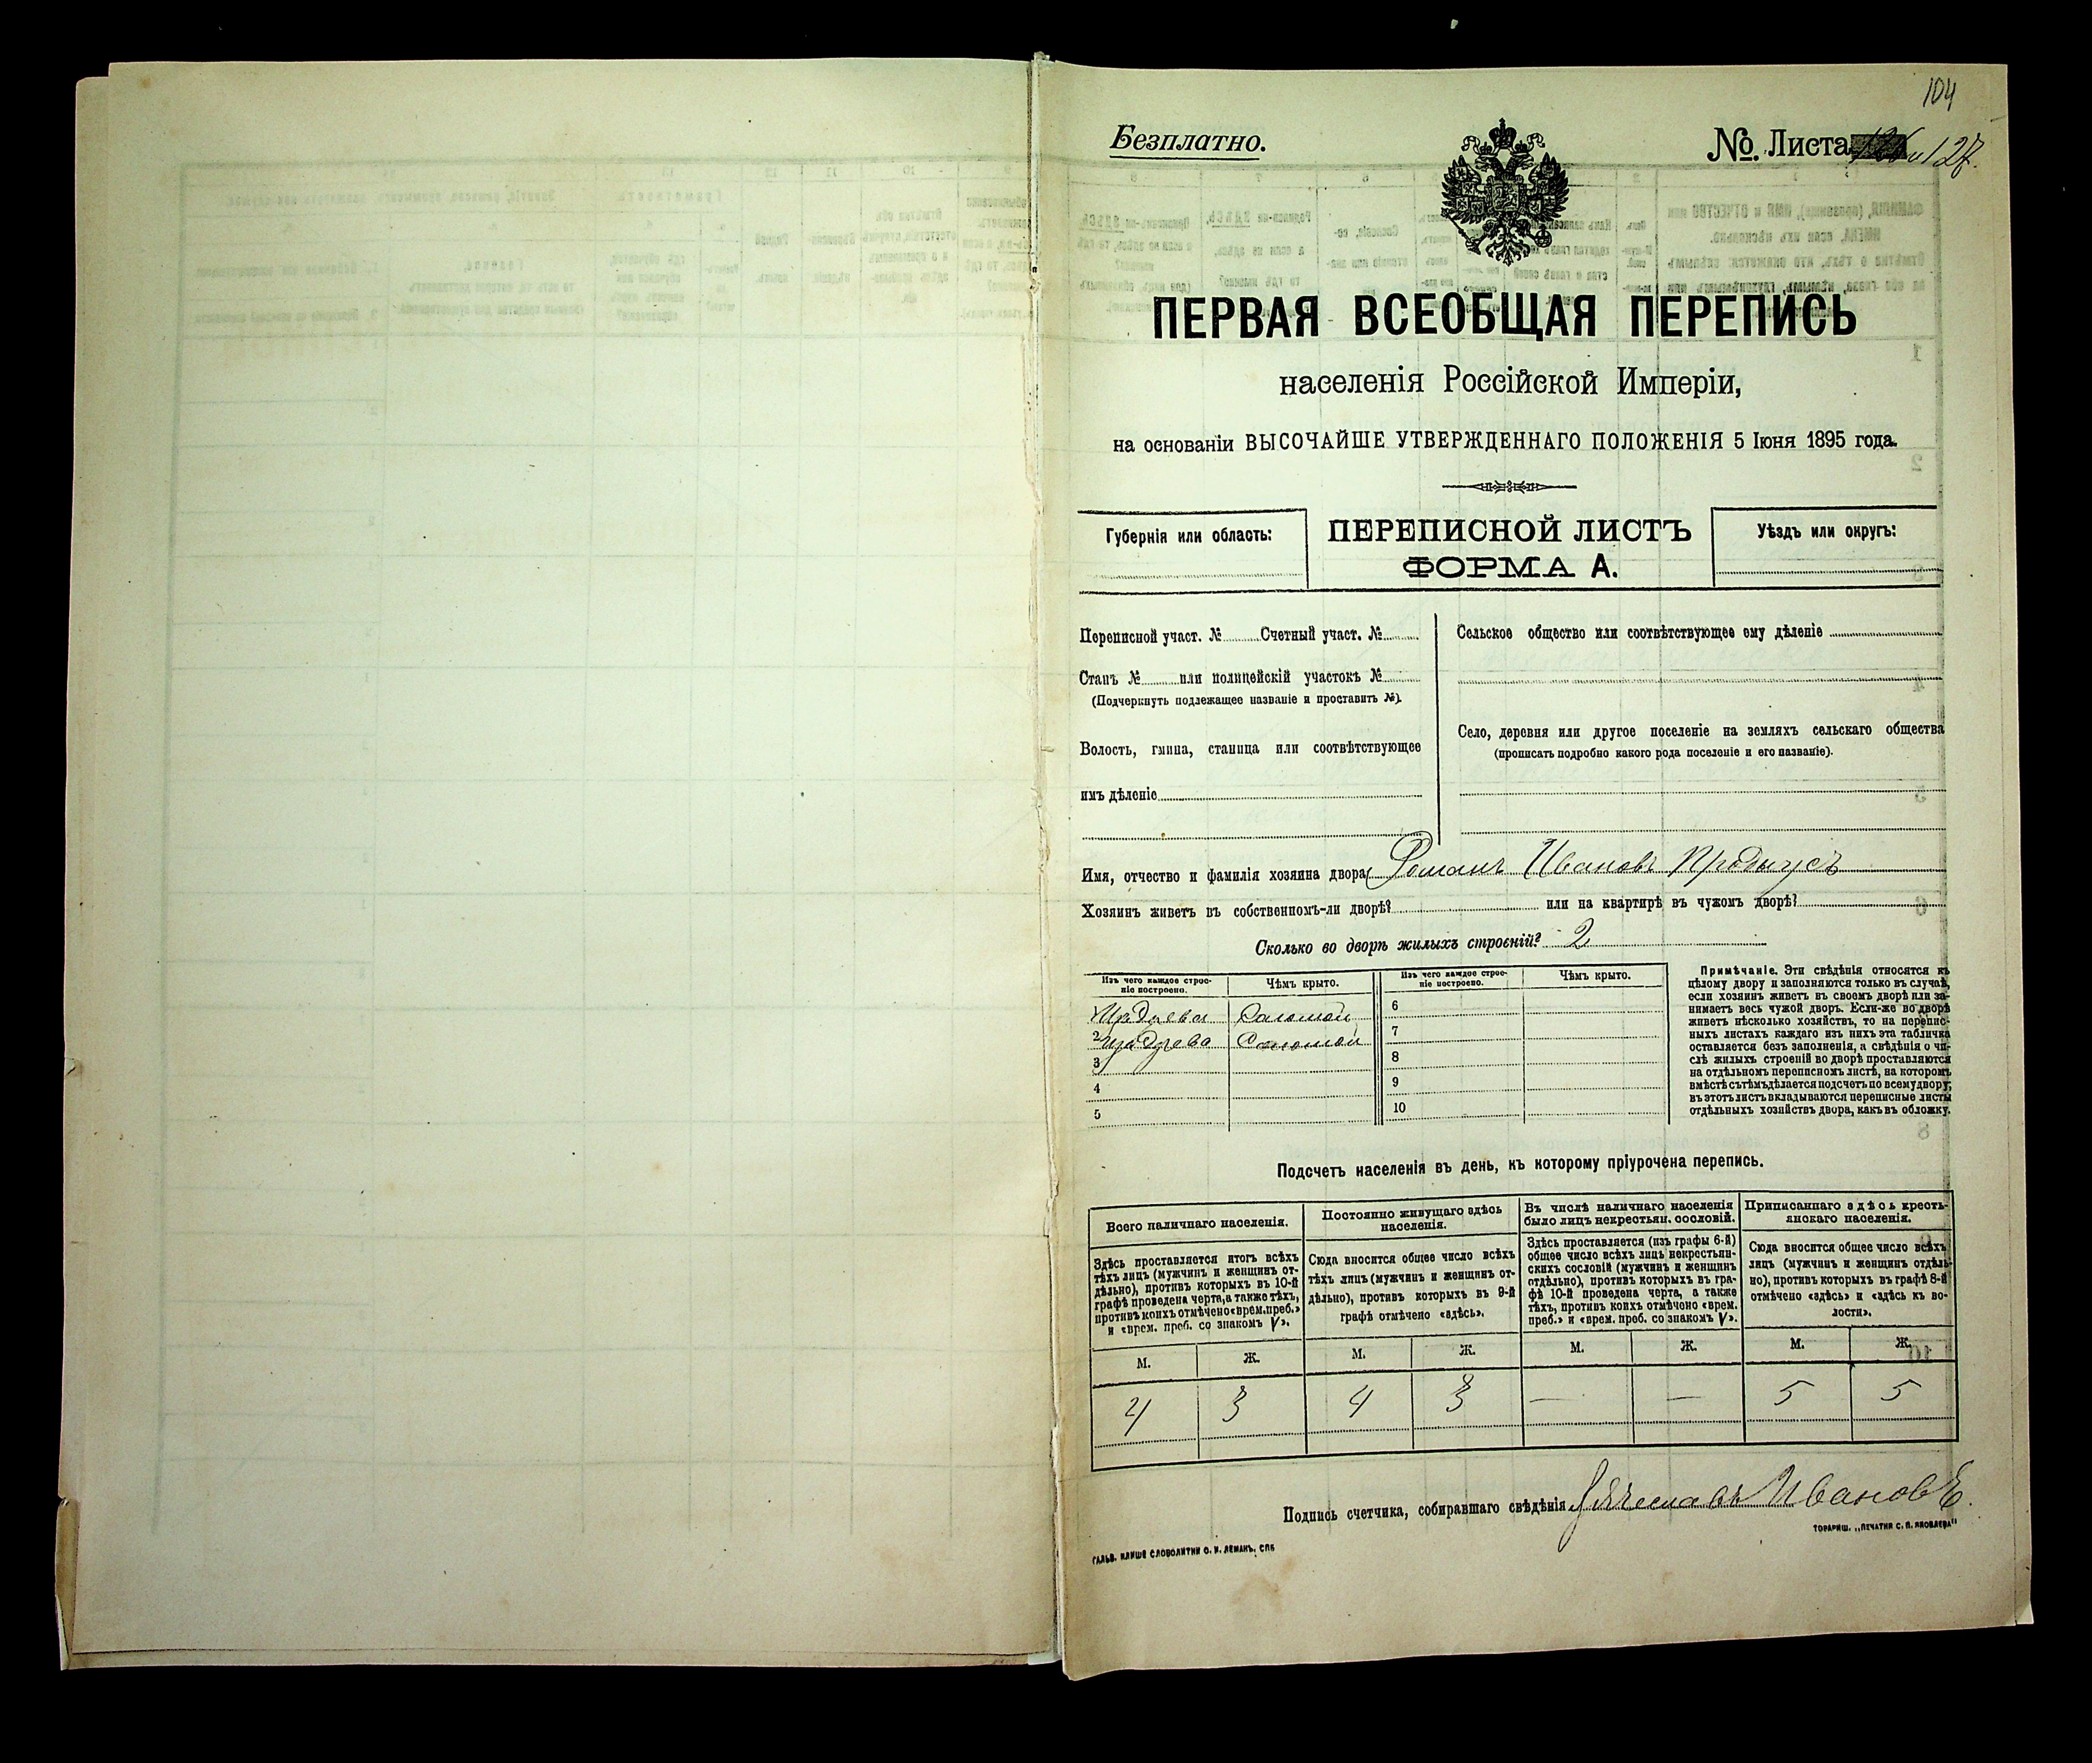 104
Безплатно.
№. Листа 127.
ПЕРВАЯ ВСЕОБЩАЯ ПЕРЕПИСЬ
населенія Россійской Имперіи,
на основаніи ВЫСОЧАЙШЕ УТВЕРЖДЕННАГО ПОЛОЖЕНІЯ 5 Іюня 1895 года.
Губернія или область:
ПЕРЕПИСНОЙ ЛИСТЪ
ФОРМА А.
Уѣздъ или округъ:
Переписной участ. № Счетный участ. №
Станъ № или полицейскій участокъ №
(Подчеркнуть подлежащее названіе и проставить №).
Волость, гмина, станица или соотвѣтствующее
имъ дѣленіе
Сельское общество или соотвѣтствующее ему дѣленіе
Село, деревня или другое поселеніе на земляхъ сельскаго общества
(прописать подробно какого рода поселеніе и его названіе).
Имя, отчество и фамилія хозяина двора Романъ Ивановъ
Хозяинъ живетъ въ собственномъ-ли дворѣ? или на квартирѣ въ чужомъ дворѣ?
Сколько во дворѣ жилыхъ строеній? 2
Изъ чего каждое строе-
ніе построено.
Чѣмъ крыто.
Изъ чего каждое строе-
ніе построено.
Чѣмъ крыто.
1 Издрева Соломой
2 Издрева Соломой
3
4
5
6
7
8
9
10
Примѣчаніе. Эти свѣдѣнія относятся къ
цѣлому двору и заполняются только въ случаѣ,
если хозяинъ живетъ въ своемъ дворѣ или за-
нимаетъ весь чужой дворъ. Если-же во дворѣ
живетъ нѣсколько хозяйствъ, то на перепис-
ныхъ листахъ каждаго изъ нихъ эта табличка
оставляется безъ заполненія, а свѣдѣнія о чи-
слѣ жилыхъ строеній во дворѣ проставляются
на отдѣльномъ переписномъ листѣ, на которомъ
вмѣстѣ съ тѣмъ дѣлается подсчетъ по всему двору;
въ этотъ листъ вкладываются переписные листы
отдѣльныхъ хозяйствъ двора, какъ въ обложку.
Подсчетъ населенія въ день, къ которому пріурочена перепись.
Всего наличнаго населенія.
Постоянно живущаго здѣсь
населенія.
Въ числѣ наличнаго населенія
было лицъ некрестьян. сословій.
Приписаннаго здѣсь кресть-
янскаго населенія.
Здѣсь проставляется итогъ всѣхъ
тѣхъ лицъ (мужчинъ и женщинъ от-
дѣльно), противъ которыхъ въ 10-й
графѣ проведена черта, а также тѣхъ,
противъ коихъ отмѣчено «врем. преб.»
и «врем. преб. со знакомъ V».
Сюда вносится общее число всѣхъ
тѣхъ лицъ (мужчинъ и женщинъ от-
дѣльно), противъ которыхъ въ 9-й
графѣ отмѣчено «здѣсь».
Здѣсь проставляется (изъ графы 6-й)
общее число всѣхъ лицъ некрестьян-
скихъ сословій (мужчинъ и женщинъ
отдѣльно), противъ которыхъ въ гра-
фѣ 10-й проведена черта, а также
тѣхъ, противъ коихъ отмѣчено «врем.
преб.» и «врем. преб. со знакомъ V».
Сюда вносится общее число всѣхъ
лицъ (мужчинъ и женщинъ отдѣль-
но), противъ которыхъ въ графѣ 8-й
отмѣчено «здѣсь» и «здѣсь къ во-
лости».
М. Ж. М. Ж. М. Ж. М. Ж.
4 3 4 3 — — 5 5
Подпись счетчика, собиравшаго свѣдѣнія Вячеславъ Ивановъ.
ТОВАРИЩ. „ПЕЧАТНЯ С. П. ЯКОВЛЕВА"
ГАЛЬВ. КЛИШЕ СЛОВОЛИТНИ О. И. ЛЕМАНЪ, СПБ